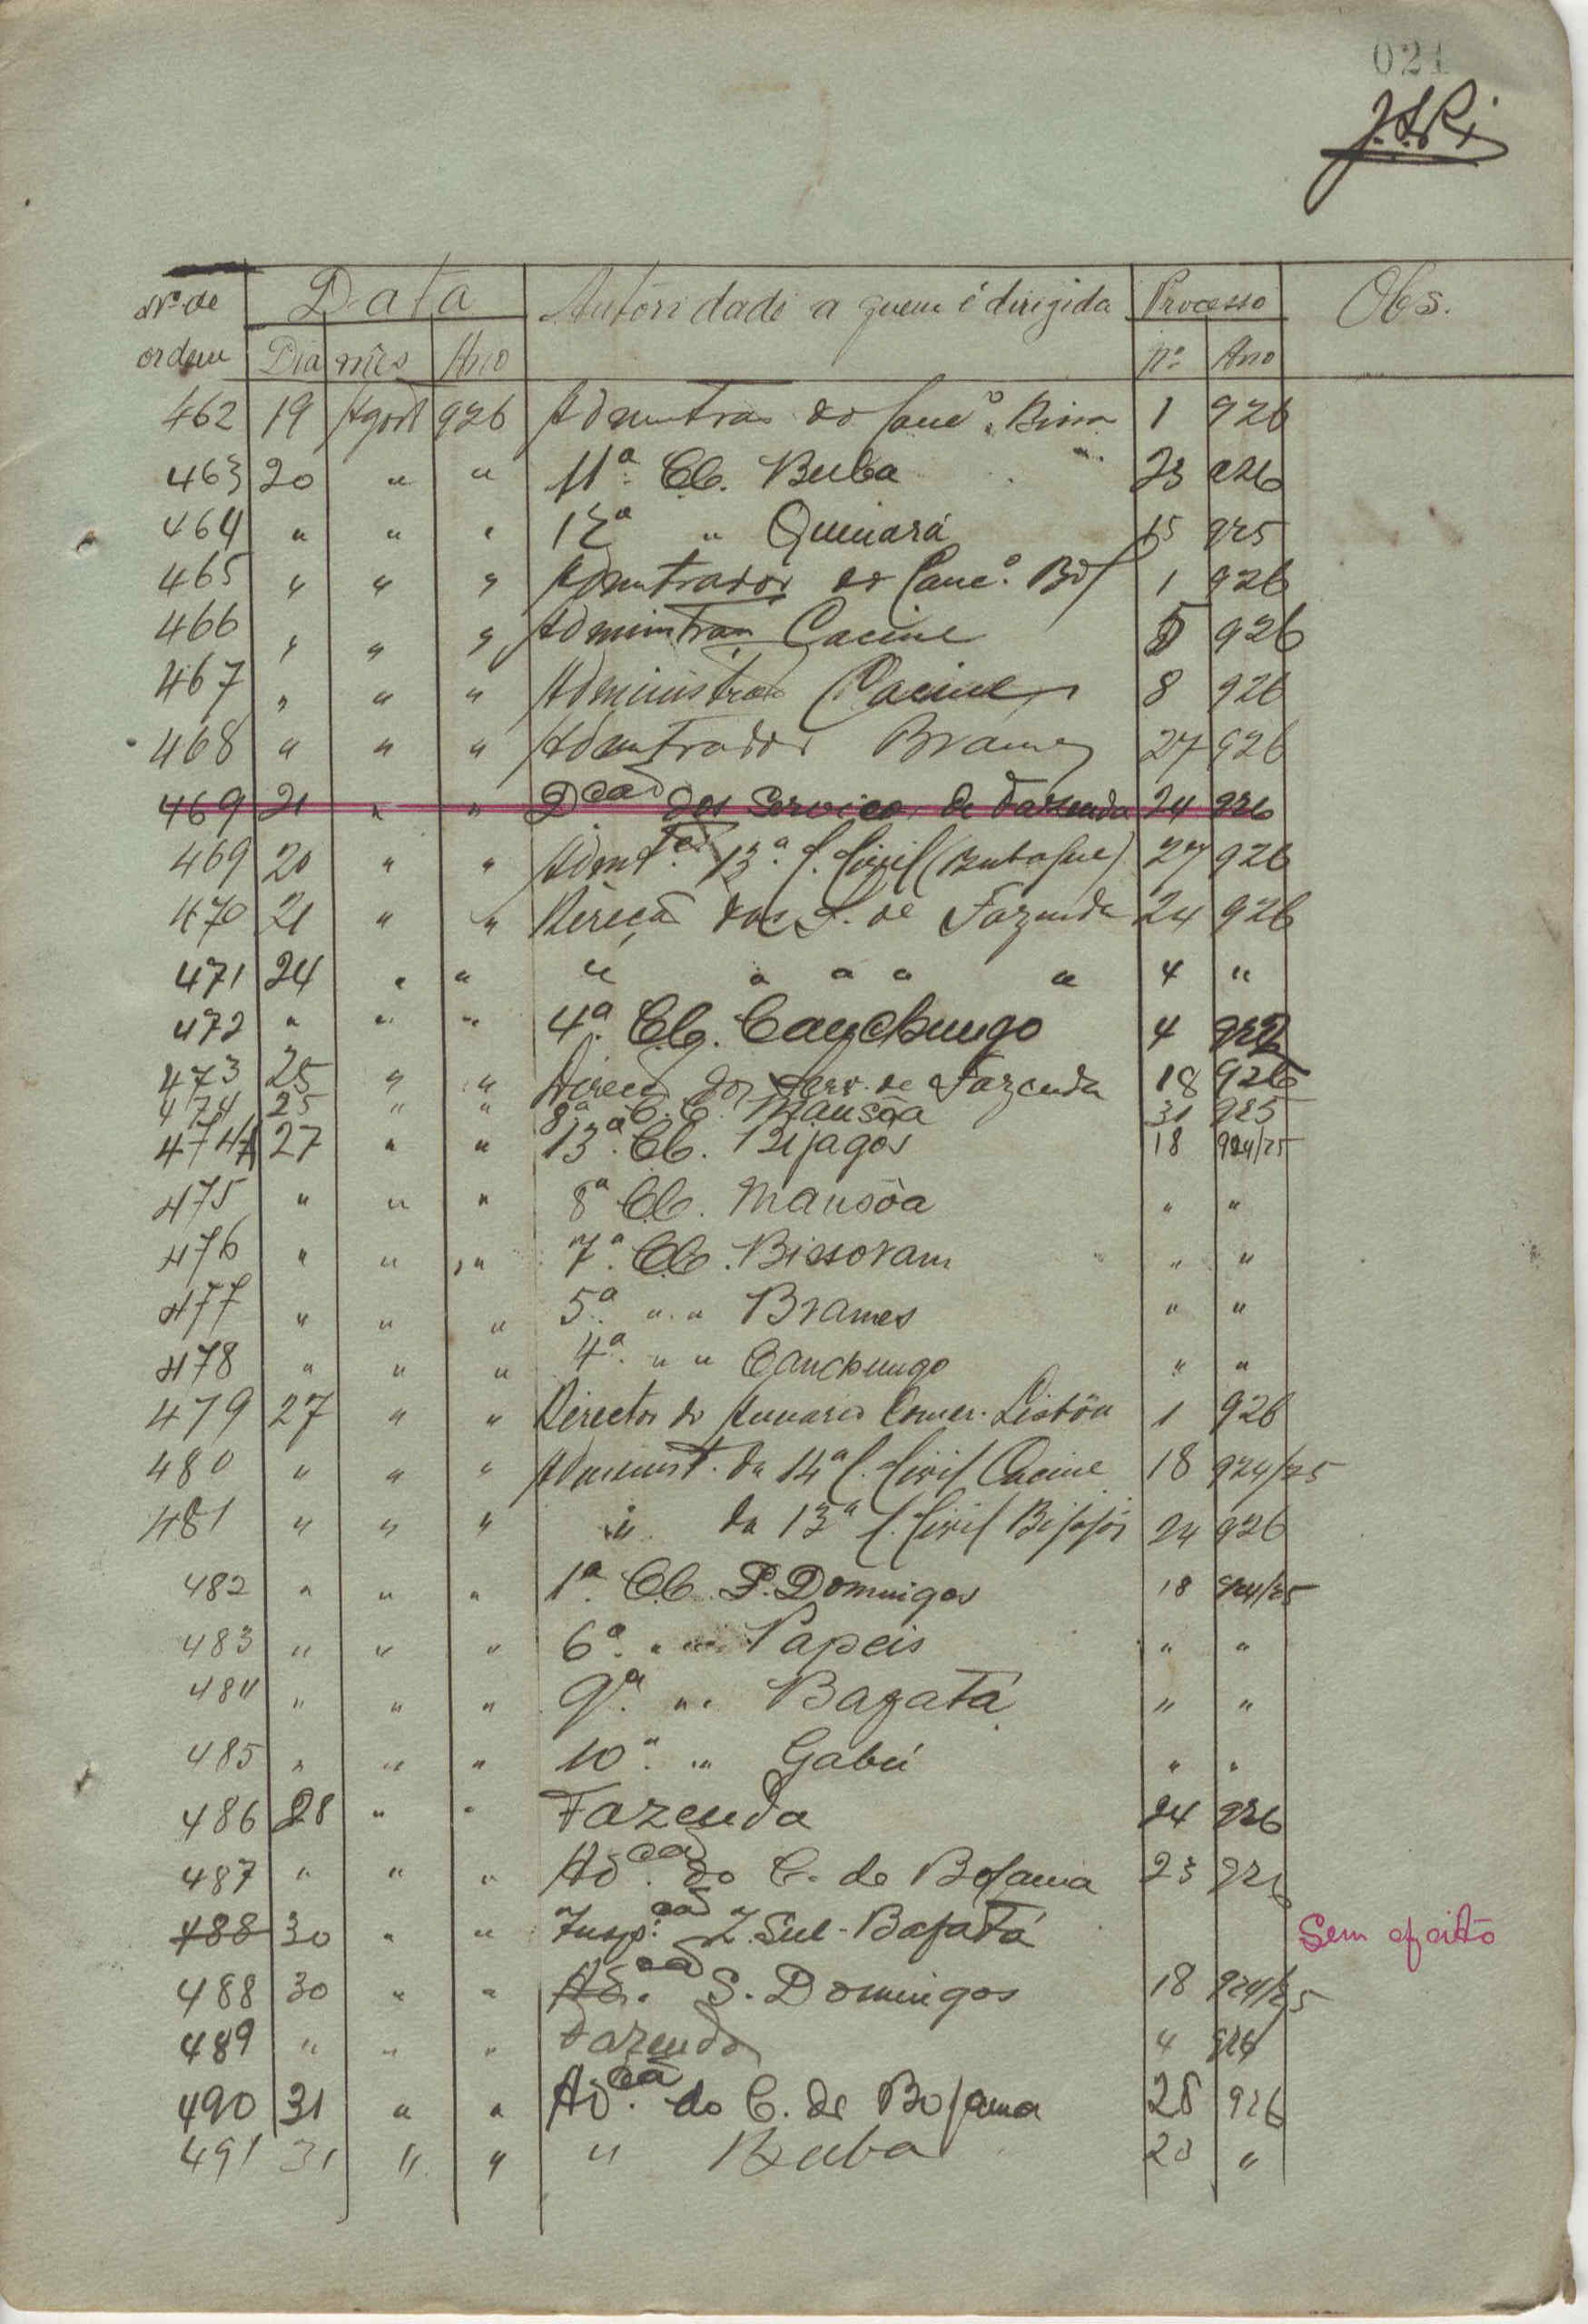 021
Nº de Data Autoridade a quem é dirigida Processo Obs.
ordem Dia mês Ano nº Ano
462 19 Agost 926 do Conc.º 1 926
463 20 " " 11ª C.C. Buba 23 926
464 " " " 12ª " Quinará 15 925
465 " " " do Conc.º Bol 1 926
466 " " " Cacine 5 926
467 " " " Cacine 8 926
468 " " " Brames 27 926
469 21 " " D.cão dos Serviços de Fazenda 24 926
469 20 " " 13ª C. Civil 27 926
470 21 " " Direcão dos S. de Fazenda 24 926
471 24 " " " " " " " 4 "
472 " " " 4ª C.C. Canchungo 4
473 25 " " Direcão dos Serv. de Fazenda 18 926
474 25 " " 8ª C.C. Mansôa 31 925
474A 27 " " 13ª C.C. Bijagós 18 924/25
475 " " " 8ª C.C. Mansôa " "
476 " " " 7ª C.C. Bissoram " "
477 " " " 5ª " " Brames " "
478 " " " 4ª " " Canchungo " "
479 27 " " Director do Anuario Comer. Lisbôa 1 926
480 " " " Administ. da 14ª C. Civil Cacine 18 924/25
481 " " " " da 13ª C. Civil Bijagós 24 926
482 " " " 1ª C.C. S. Domingos 18 924/25
483 " " " 6ª " " Papeis " "
484 " " " 9ª " " Bafatá " "
485 " " " 10ª " Gabú " "
486 28 " " Fazenda 24 926
487 " " " Ad.cão do C. de Bolama 23 926
488 30 " " Insp.cão Z. Sul - Bafatá Sem efeito
488 30 " " Ad.cão S. Domingos 18 924/25
489 " " " Fazenda 4
490 31 " " Ad.cão do C. de Bolama 28 926
491 31 " " " Buba 20 "